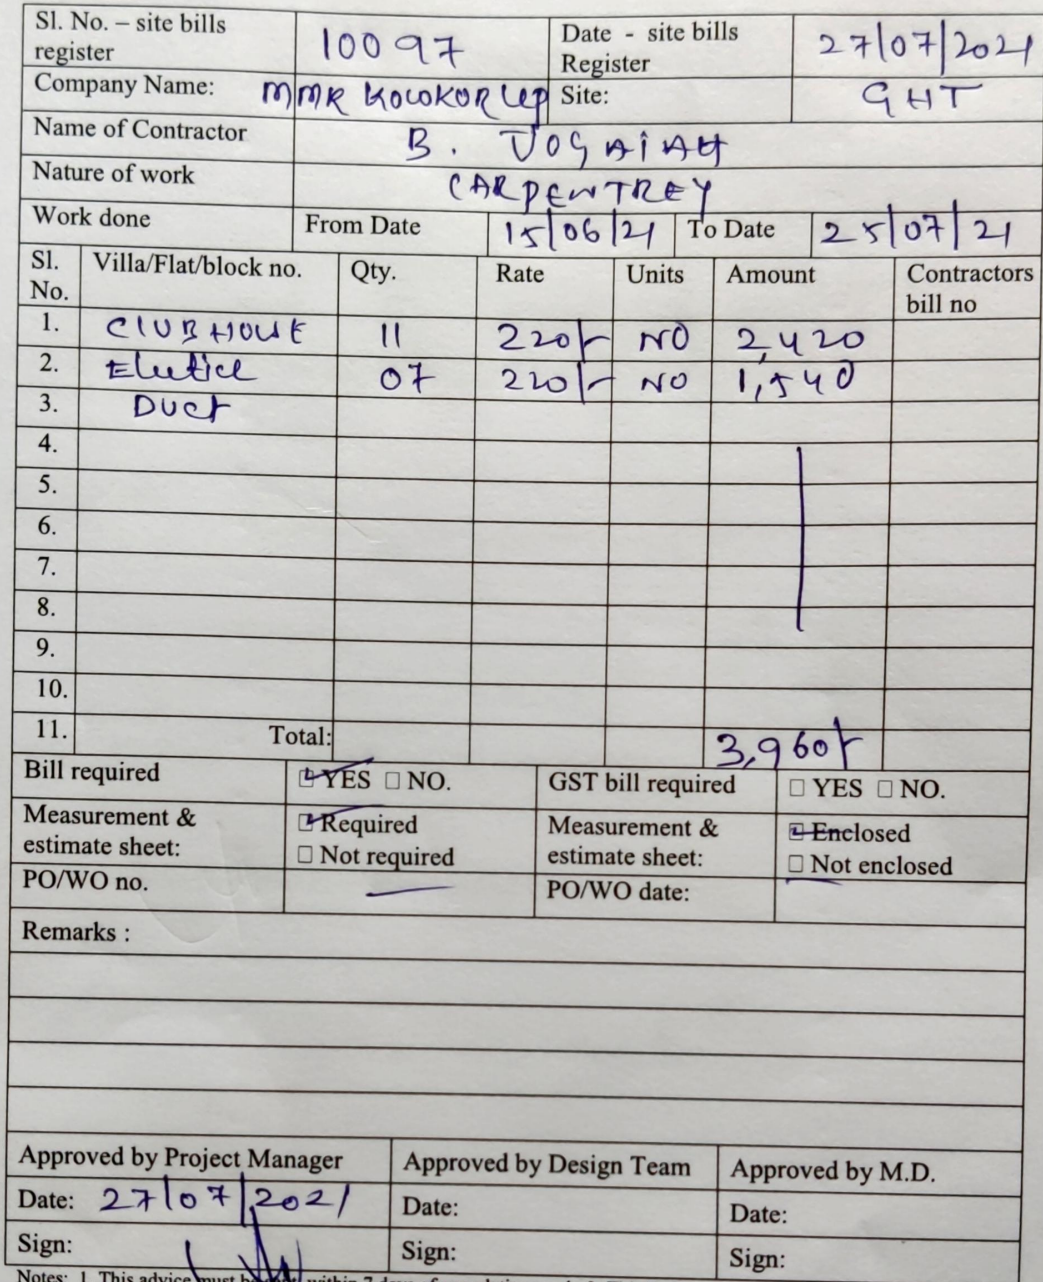 Sl. No. – site bills register 10097 Date - site bills Register 27/07/2021
Company Name: MMR KOLOKOR LLP Site: GHT
Name of Contractor B. JOGAIAH
Nature of work CARPENTREY
Work done From Date 15/06/21 To Date 25/07/21
Sl. No. Villa/Flat/block no. Qty. Rate Units Amount Contractors bill no
1. CLUBHOUSE 11 220/- NO 2,420
2. 07 220/- NO 1,540
3. Duct
4.
5.
6.
7.
8.
9.
10.
11. Total: 3,960/-
Bill required YES NO. GST bill required YES NO.
Measurement & estimate sheet: Required Not required Measurement & estimate sheet: Enclosed Not enclosed
PO/WO no. PO/WO date:
Remarks :
Approved by Project Manager Approved by Design Team Approved by M.D.
Date: 27/07/2021 Date: Date:
Sign: Sign: Sign:
Notes: 1. This advice must be